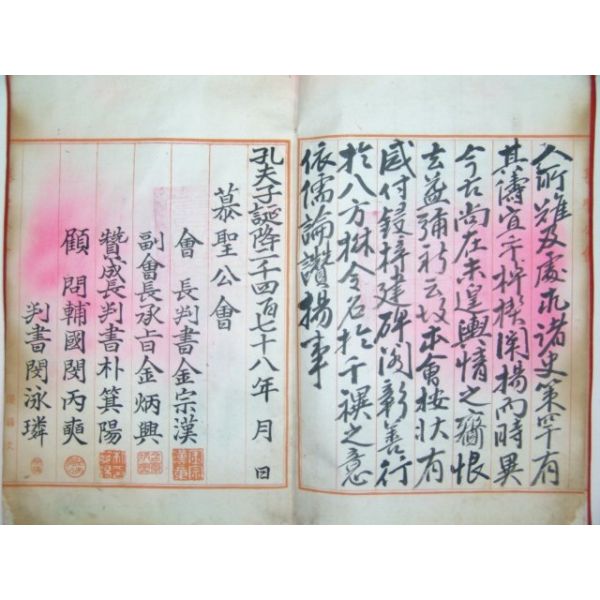 人所難及處求諸史策罕有
其儔宜乎棹楔闡揚而時異
今古尚在未遑輿情之齎恨
去益彌新云故本會按狀有
感付鋟梓建碑闡彰善行
於八方楙令名於千禩之意
依儒論讚揚事
孔夫子誕降二千四百七十八年 月 日
慕聖公會
會長判書金宗漢
副會長承旨金炳興
贊成長判書朴箕陽
顧問輔國閔丙奭
判書閔泳璘